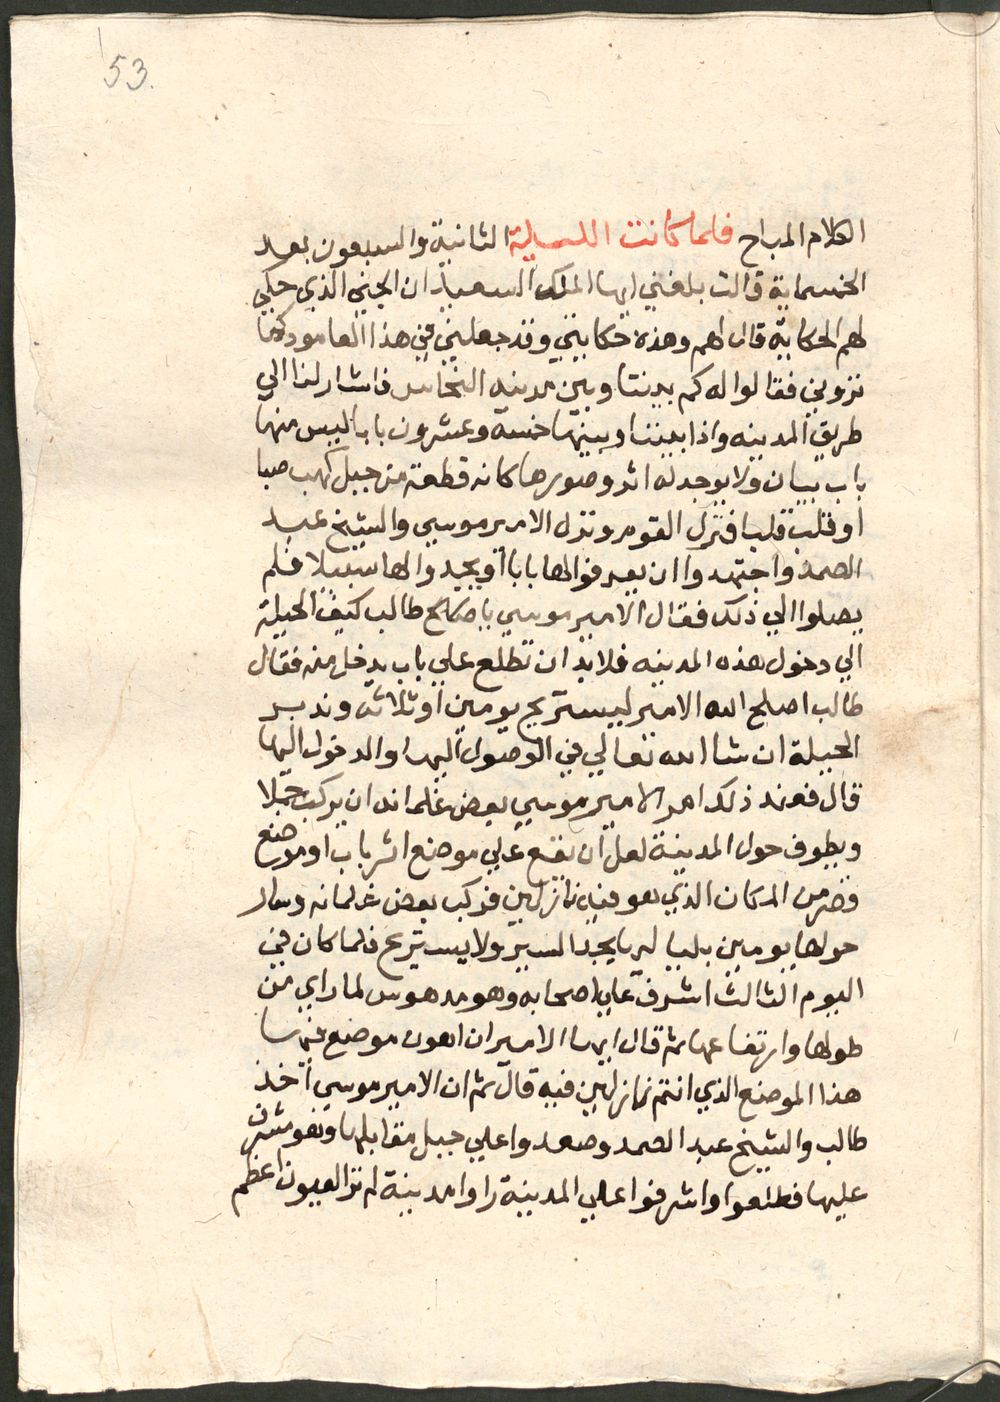 53.
الكلام المباح فلما كانت الليلة الثانية والسبعون بعد
الخسماية قالت بلغني ايها الملك السعيد ان الجني الذي حكي
لهم الحكاية قال لهم وهذه حكايتي وقد جعليني في هذا العامود كما
تروني فقالوا له كم بيننا وبين مدينه النحاس فاشار لنا الي
طريق المدينه واذا بيننا وبينها خمسة وعشرون بابا ليس منها
باب يبان ولا يوجد له اثر وصورها كانه قطعة من جبل
او قلب فنزل القوم ونزل الامير موسي والشيخ عبد
الصمد واجتهدوا ان يعرفوا لها بابا او يجدوا لها سبيلا فلم
يصلوا الي ذلك فقال الامير موسي يا طالب كيف الحيلة
الي دخول هذه المدينه فلابد ان نطلع علي باب يدخل منه فقال
طالب اصلح الله الامير ليستريح يومين او ثلاثه وندبر
الحيلة ان شا الله تعالي في الوصول اليها والدخول اليها
قال فعند ذلك امر الامير موسي بعض غلمانه ان يركب جملا
ويطوف حول المدينة لعل ان يقع علي موضع اثر باب او موضع
قصر من المكان الذي هو فيه نازلين فركب بعض غلمانه وسار
حولها يومين بلياليها يجد السير ولا يستريح فلما كان في
اليوم الثالث اشرف علي اصحابه وهو مدهوس لما راي من
طولها وارتفاعها ثم قال ايها الامير ان اهون موضع فيها
هذا الموضع الذي انتم نازلين فيه قال ثم ان الامير موسي اخذ
طالب والشيخ عبد الصمد وصعدوا علي جبل مقابلها وهو مشرف
عليها فطلعوا واشرفوا علي المدينة راوا مدينة لم تر العيون اعظم